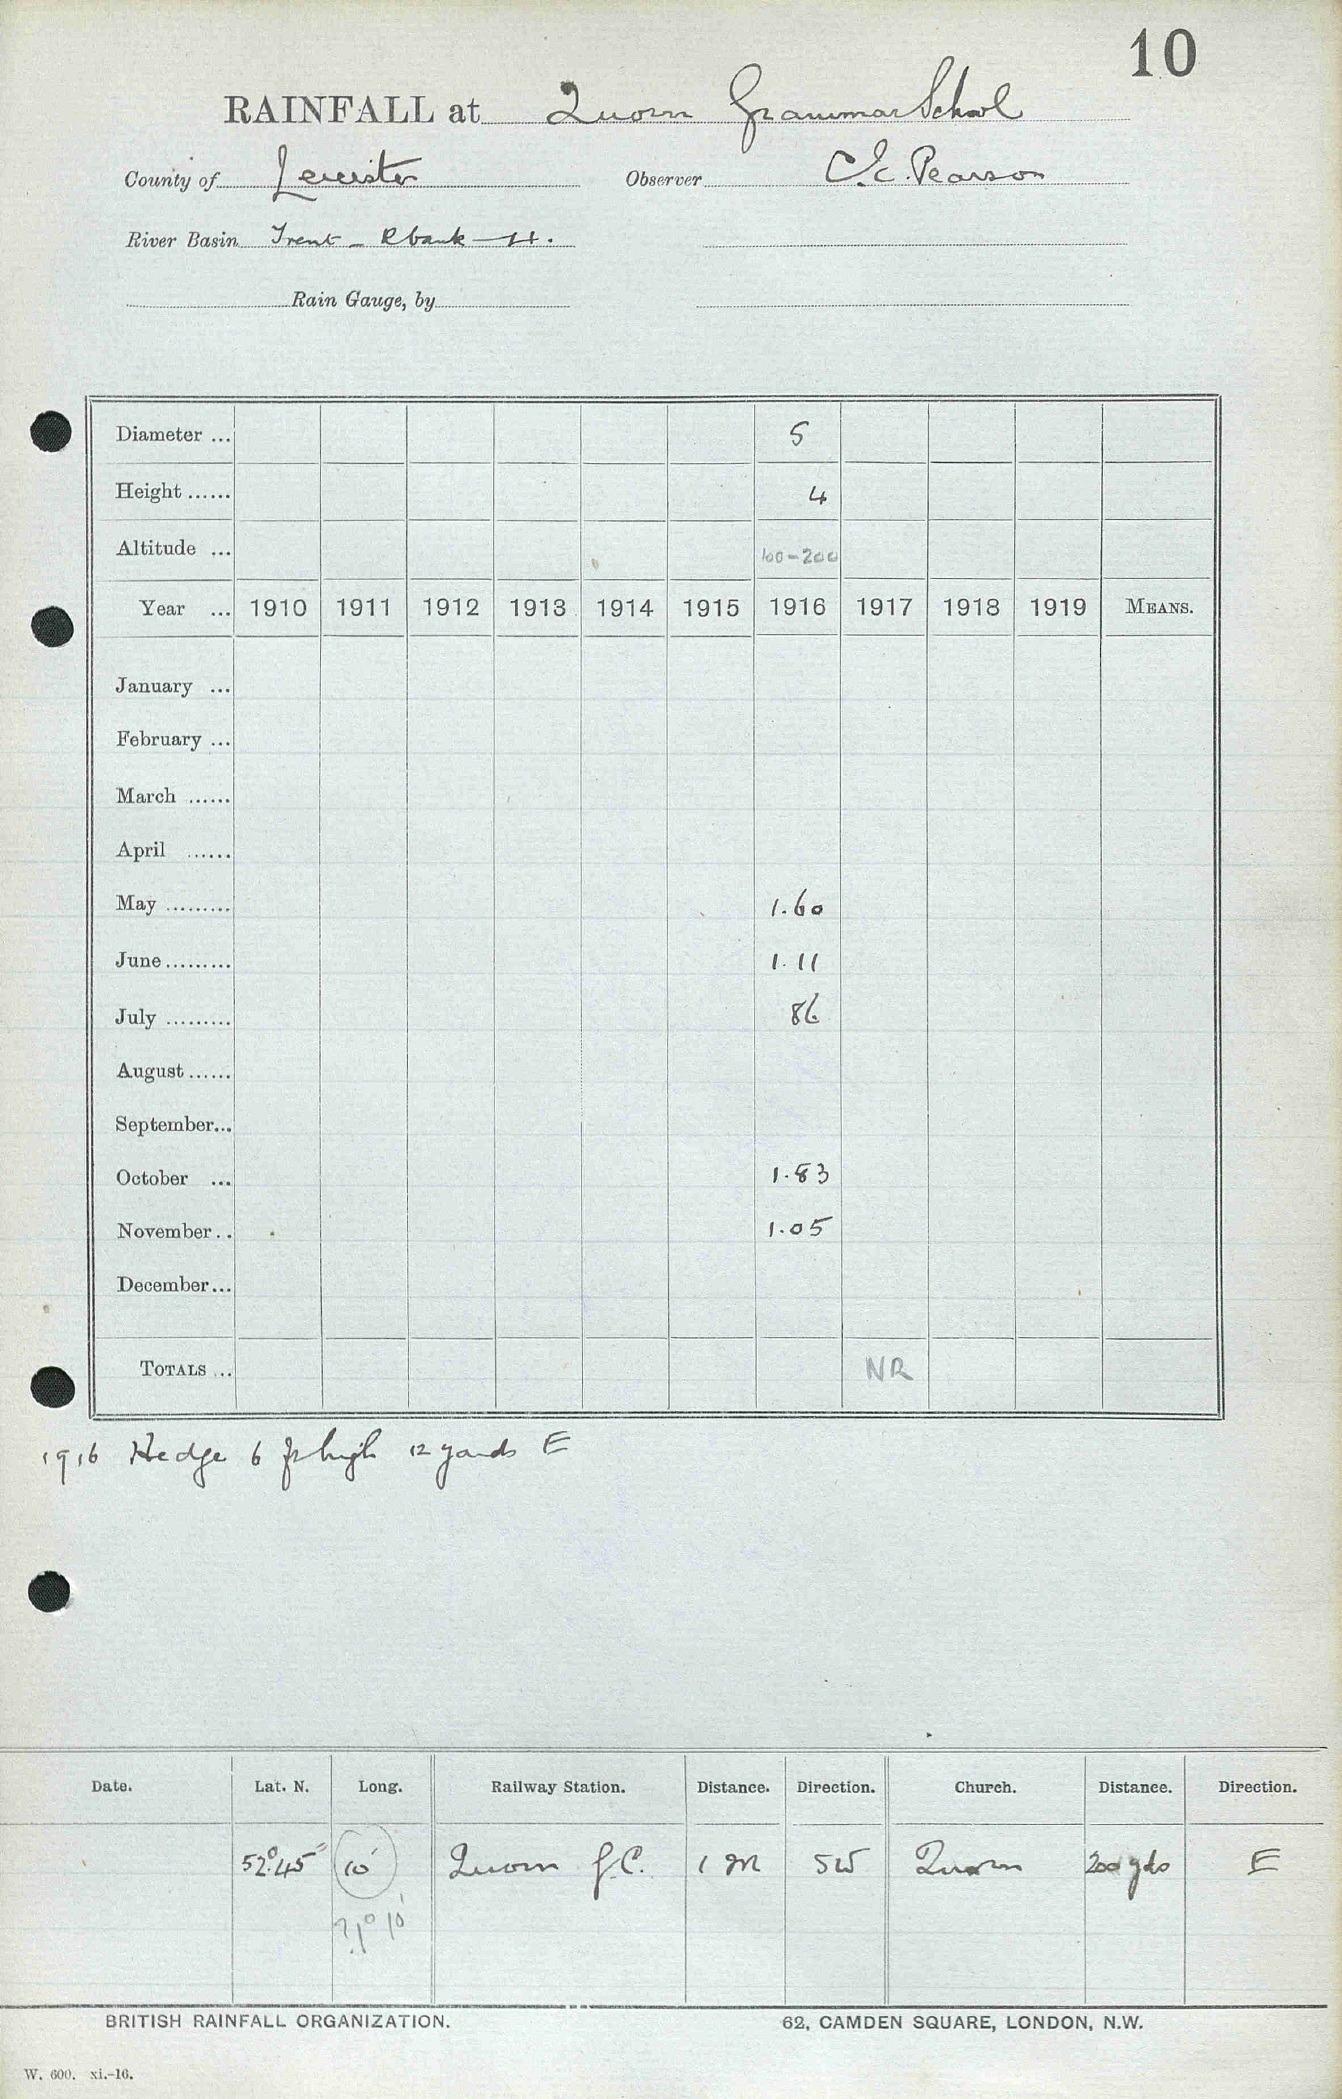 10
RAINFALL at Quorn Grammar School
County of Leicester Observer C.E. Pearson
River Basin Trent - R bank - H.
Rain Gauge, by
Diameter ... 5
Height ...... 4
Altitude ... 100-200
Year ... 1910 1911 1912 1913 1914 1915 1916 1917 1918 1919 MEANS.
January ...
February ...
March ......
April ......
May ......... 1.60
June ......... 1.11
July ......... 86
August ......
September...
October ... 1.83
November .. 1.05
December...
TOTALS ... NR
1916 Hedge 6 ft high 12 yards E
Date. Lat. N. Long. Railway Station. Distance. Direction. Church. Distance. Direction.
52° 45' 10' Quorn G.C. 1 M SW Quorn 200 yds E
? 1° 10'
BRITISH RAINFALL ORGANIZATION. 62, CAMDEN SQUARE, LONDON, N.W.
W. 600. xi.-16.